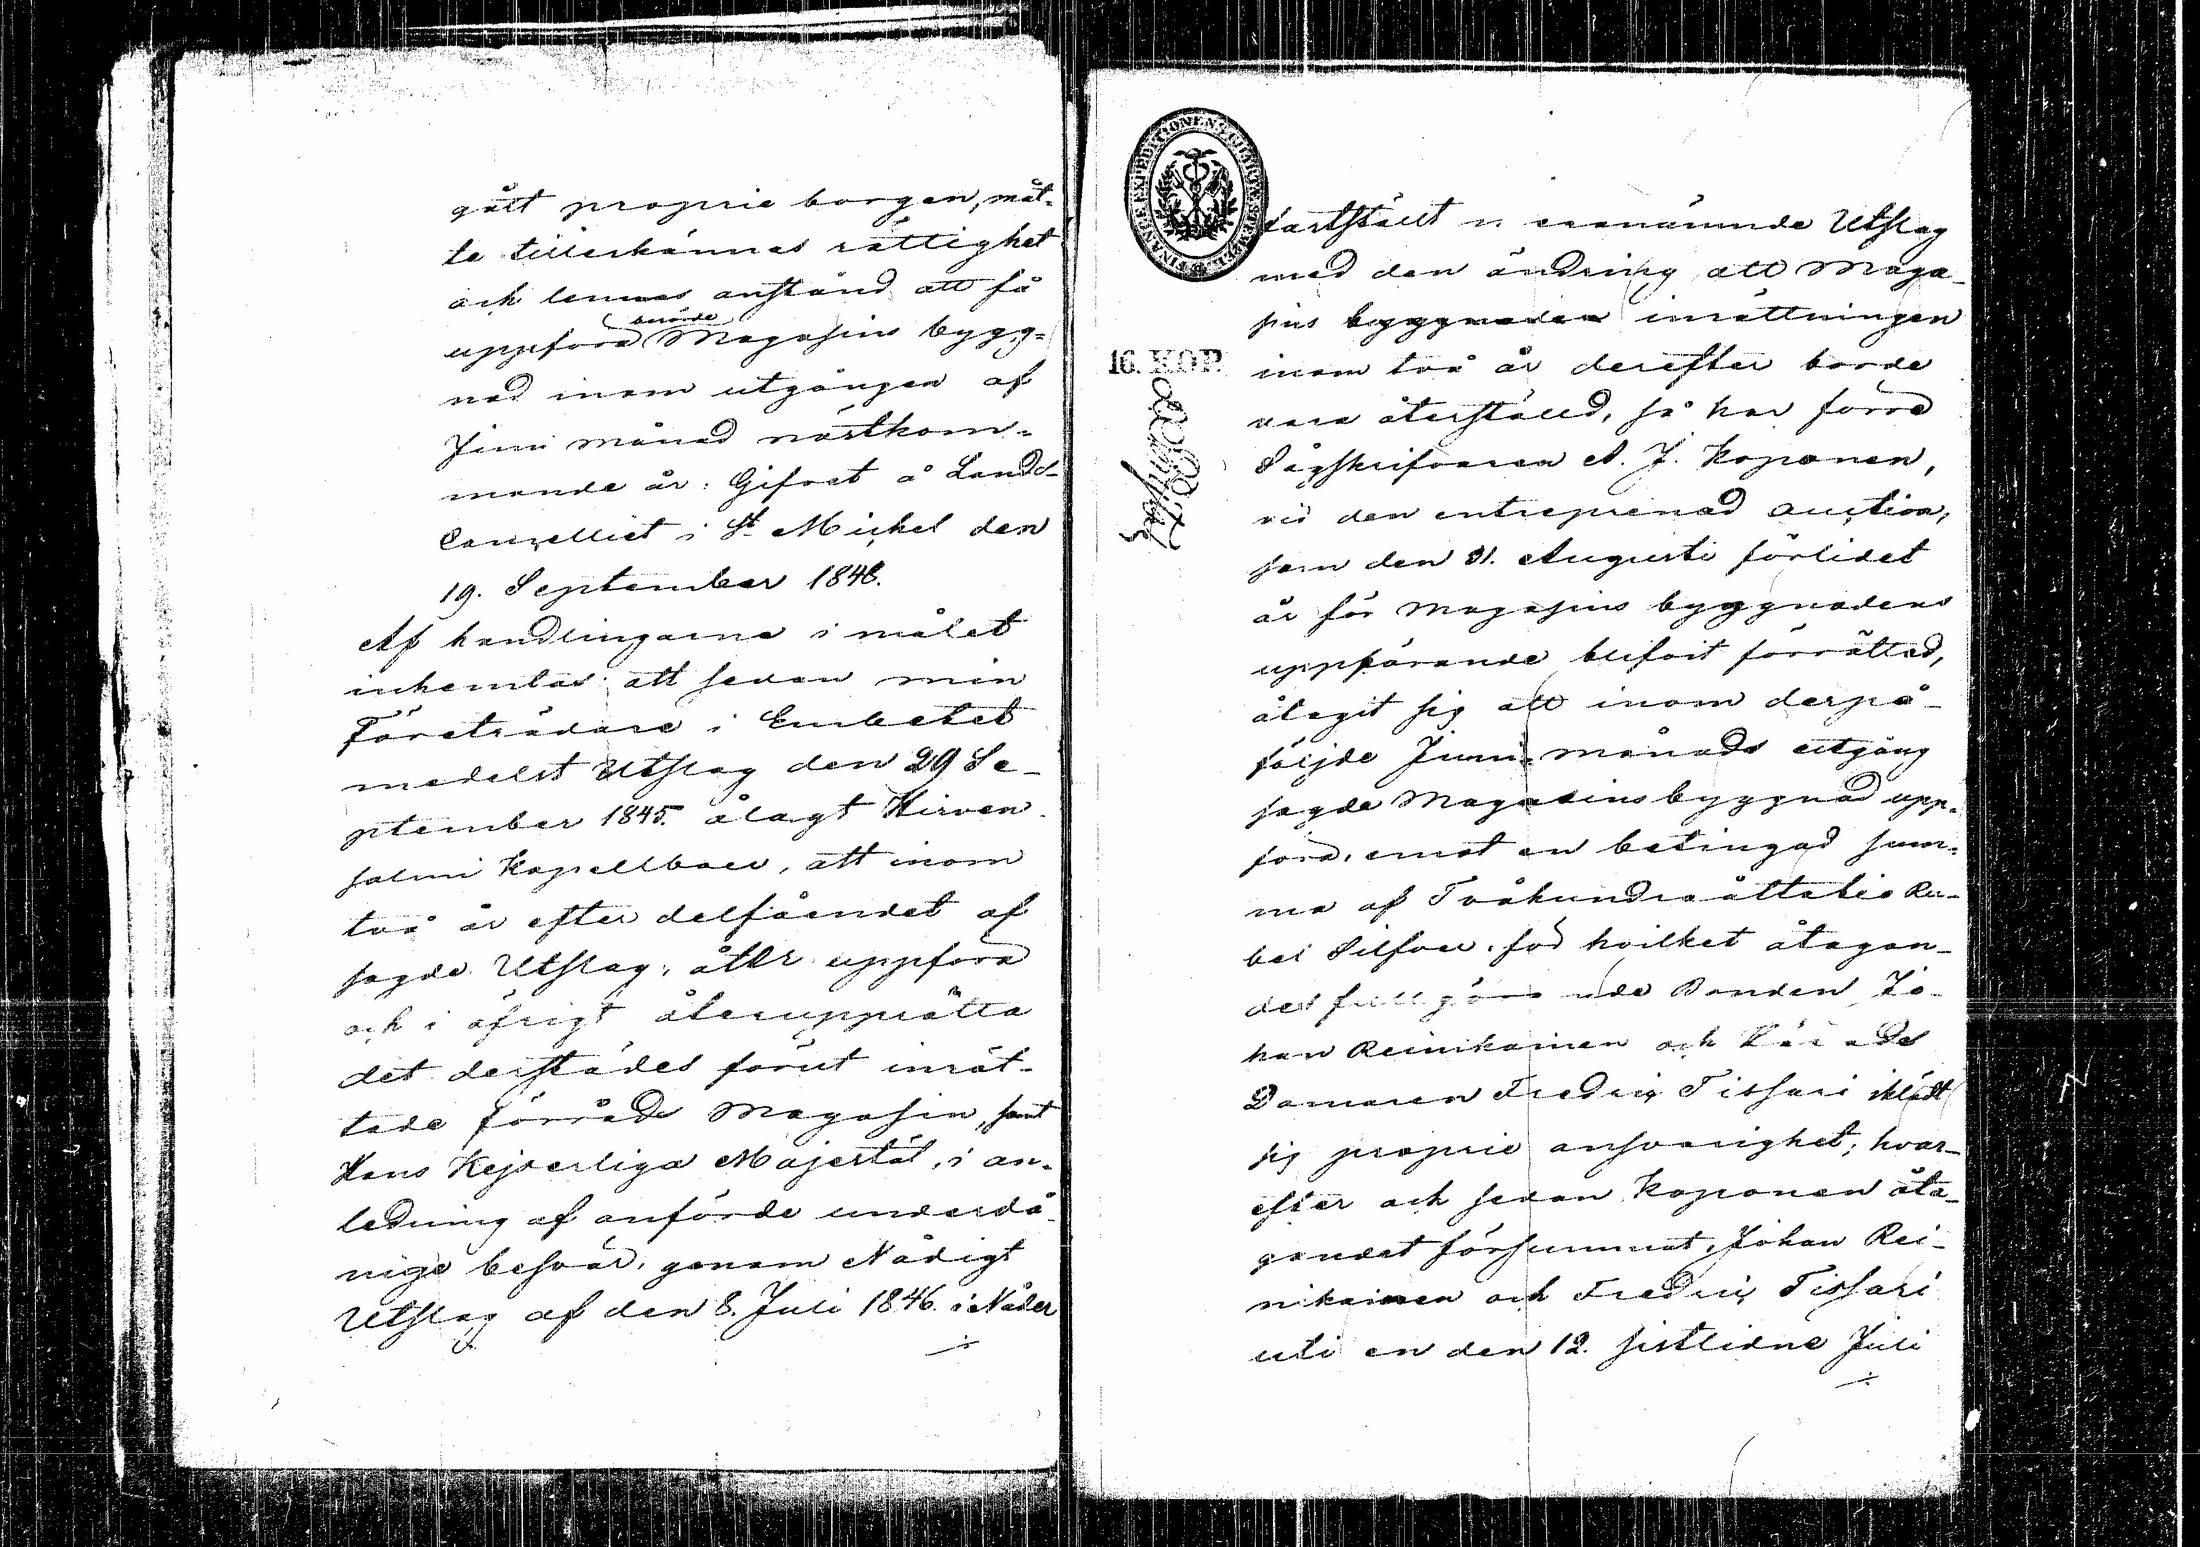 gått proprie borgen, måt-
te tillerkännas rättighet
och lemnas anstånd att få
berörde
uppföra Magasins bygg-
nad inom utgången af
Juni månad nästkom-
mande år. Gifvet å Lands-
Cancelliet i St Michel den
19. September 1848.
Af handlingarne i målet
inhemtas: att sedan min
Företrädare i Embetet
medelst Utslag den 29 Se-
ptember 1845. ålagt Hirven
salmi Kapellboer, att inom
två år efter delfåendet af
sagde Utslag, åter uppföra
och i öfrigt återupprätta
det derstädes förut inrät-
tade förråds Magasin, samt
Hans Kejserliga Majestät, i an-
ledning af anförde underdå-
nige besvär, genom Nådigt
Utslag af den 8. Juli 1846. i Nåder
FINANCE EXPEDITIONENS CHARTÆ STEMPEL
16. KOP.
fastställt enanämnde Utslag
med den ändring att Maga-
sins byggnaden inrättningen
inom två år derefter borde
vara återställd, så har förre
Sågskrifvaren A. J. Koponen,
vid den entreprenad auction,
som den 31. Augusti förlidet
år för Magasins byggnadens
uppförande blifvit förrättad,
åtagit sig att inom derpå-
följde Juni månads utgång
sagde Magasinsbyggnad upp-
föra, emot en betingad sum-
ma af Tvåhundraåttatio Ru-
bel Silfver, för hvilket åtagan-
des fullgörande Bonden Jo-
han Reinikainen och Härads
Domaren Fredric Tissari iklädt
sig proprie ansvarighet; hvar-
efter och sedan Koponen åta-
gandet försummat, Johan Rei-
nikainen och Fredric Tissari
uti en den 12. sistlidne Juli